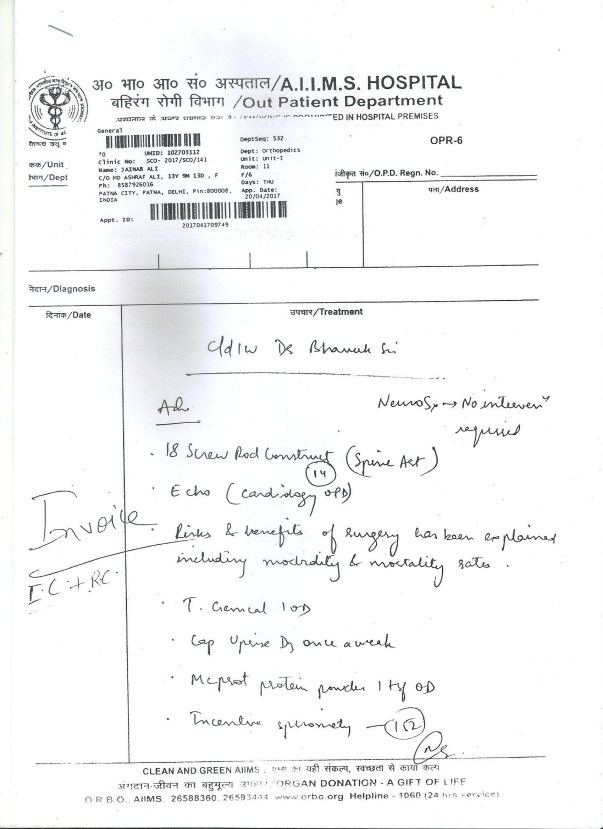 अ० भा० आ० सं० अस्पताल/A.I.I.M.S. HOSPITAL
बहिरंग रोगी विभाग /Out Patient Department
ED IN HOSPITAL PREMISES
OPR-6
General
UHID: 102703112
Clinic No: SCO- 2017/SCO/141
Name: JAINAB ALI
C/O MO ASHRAF ALI, 13Y 9M 13D , F
Ph: 8587926016
PATNA CITY, PATNA, DELHI, Pin:800008,
INDIA
Appt. ID:
2017041709749
DeptSeq: 532
Dept: Orthopedics
Unit: Unit-I
Room: 11
F/6
Days: THU
App. Date:
20/04/2017
कक्ष/Unit
/Dept
O.P.D. Regn. No.
पता/Address
निदान/Diagnosis
दिनांक/Date
उपचार/Treatment
c/d/w Dr Bhavuk Sir
Adv
NeuroSx → No interven
required
· 18 Screw Rod Construct (Spine Act)
14
· Echo (Cardiology OPD)
Invoice
· Risks & benefits of surgery has been explained
including modrdity & mortality rates.
I.C + R.C.
· T. Gemcal 1 OD
· Cap Uprise D3 once a week
· Mcprot protein powder 1 tsf OD
· Incentive spirometry — 152
CLEAN AND GREEN AIIMS / एम्स का यही संकल्प, स्वच्छता से काया कल्प
अंगदान-जीवन का बहुमूल्य उपहार/ORGAN DONATION - A GIFT OF LIFE
O.R.B.O., AIIMS, 26588360, 26593444 www.orbo.org Helpline - 1060 (24 hrs service)